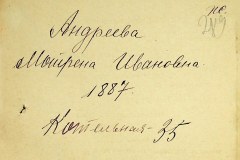 Андреева
Матрена Ивановна.
1887.
Котельная - 35